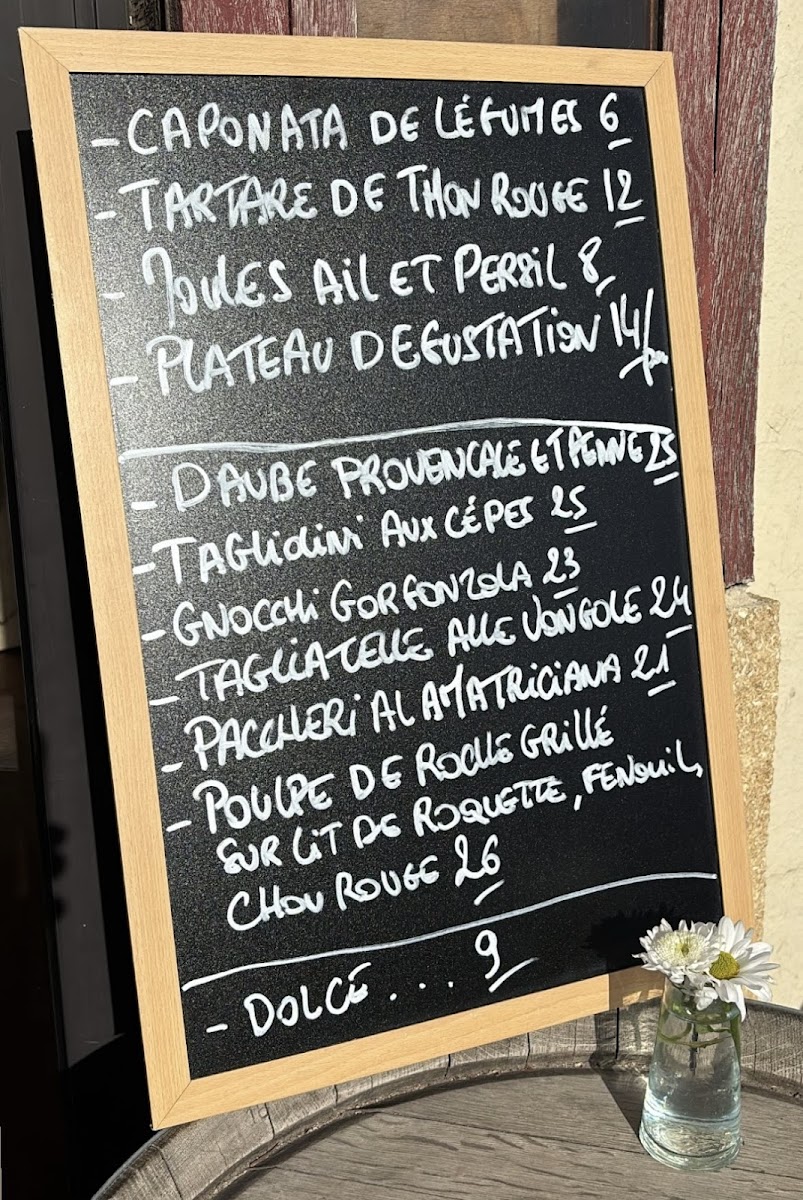 - CAPONATA DE LÉGUMES 6
- TARTARE DE THON ROUGE 12
- MOULES AIL ET PERSIL 8
- PLATEAU DEGUSTATION 14/
- DAUBE PROVENCALE ET PENNE 25
- TAGLIOLINI AUX CÉPES 25
- GNOCCHI GORGONZOLA 23
- TAGLIATELLE ALLE VONGOLE 24
- PACCHERI AL AMATRICIANA 21
- POULPE DE ROCHE GRILLÉ
SUR LIT DE ROQUETTE, FENOUIL,
CHOU ROUGE 26
- DOLCE... 9